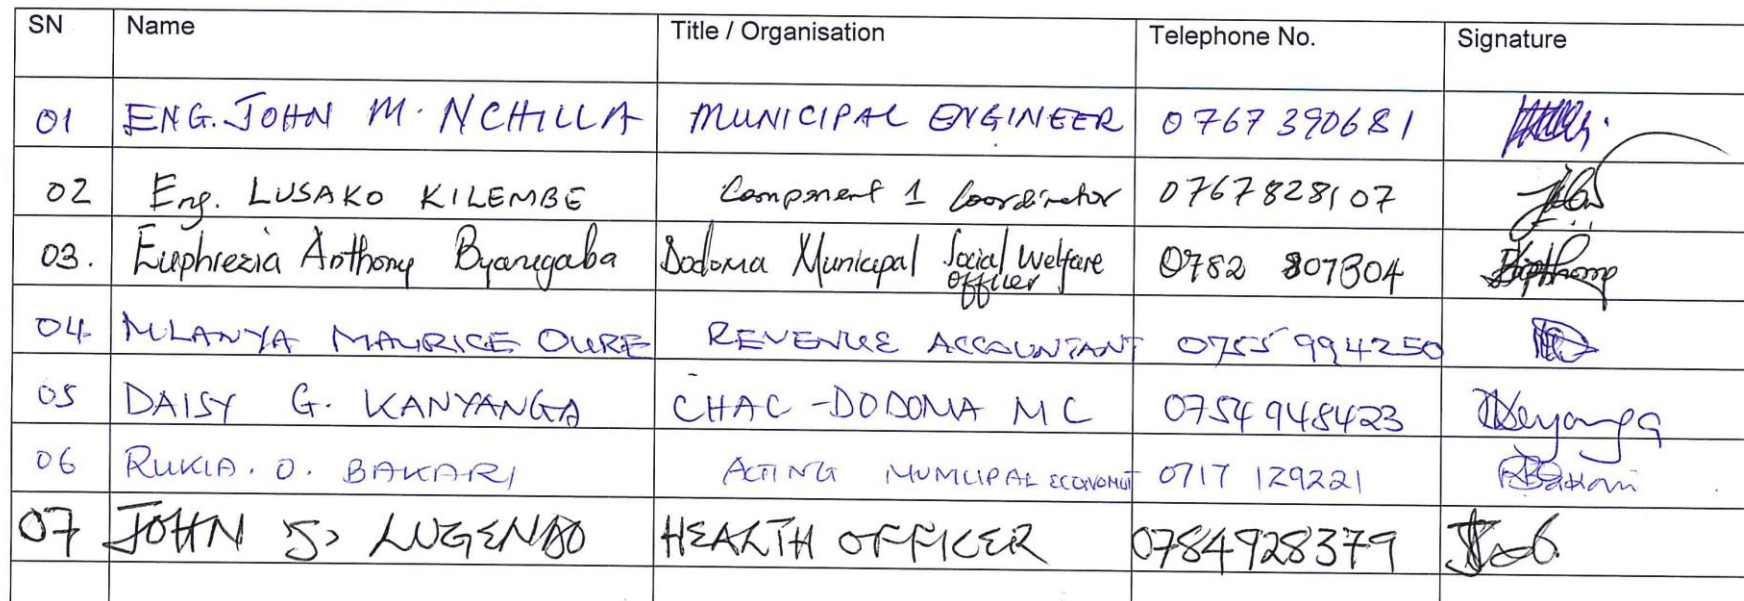 SN Name Title / Organisation Telephone No. Signature
01 ENG. JOHN M. NCHILLA MUNICIPAL ENGINEER 0767 390681
02 Eng. LUSAKO KILEMBE Component 1 Coordinator 0767828107
03. Euphrezia Anthony Byanegaba Dodoma Municipal Social Welfare Officer 0782 807304
04 MLANYA MAURICE OURE REVENUE ACCOUNTANT 0755 994250
05 DAISY G. KANYANGA CHAC - DODOMA MC 0754 948423
06 RUKIA. O. BAKARI ACTING MUNICIPAL ECONOMIST 0717 129221
07 JOHN S. LUGENDO HEALTH OFFICER 0784928379